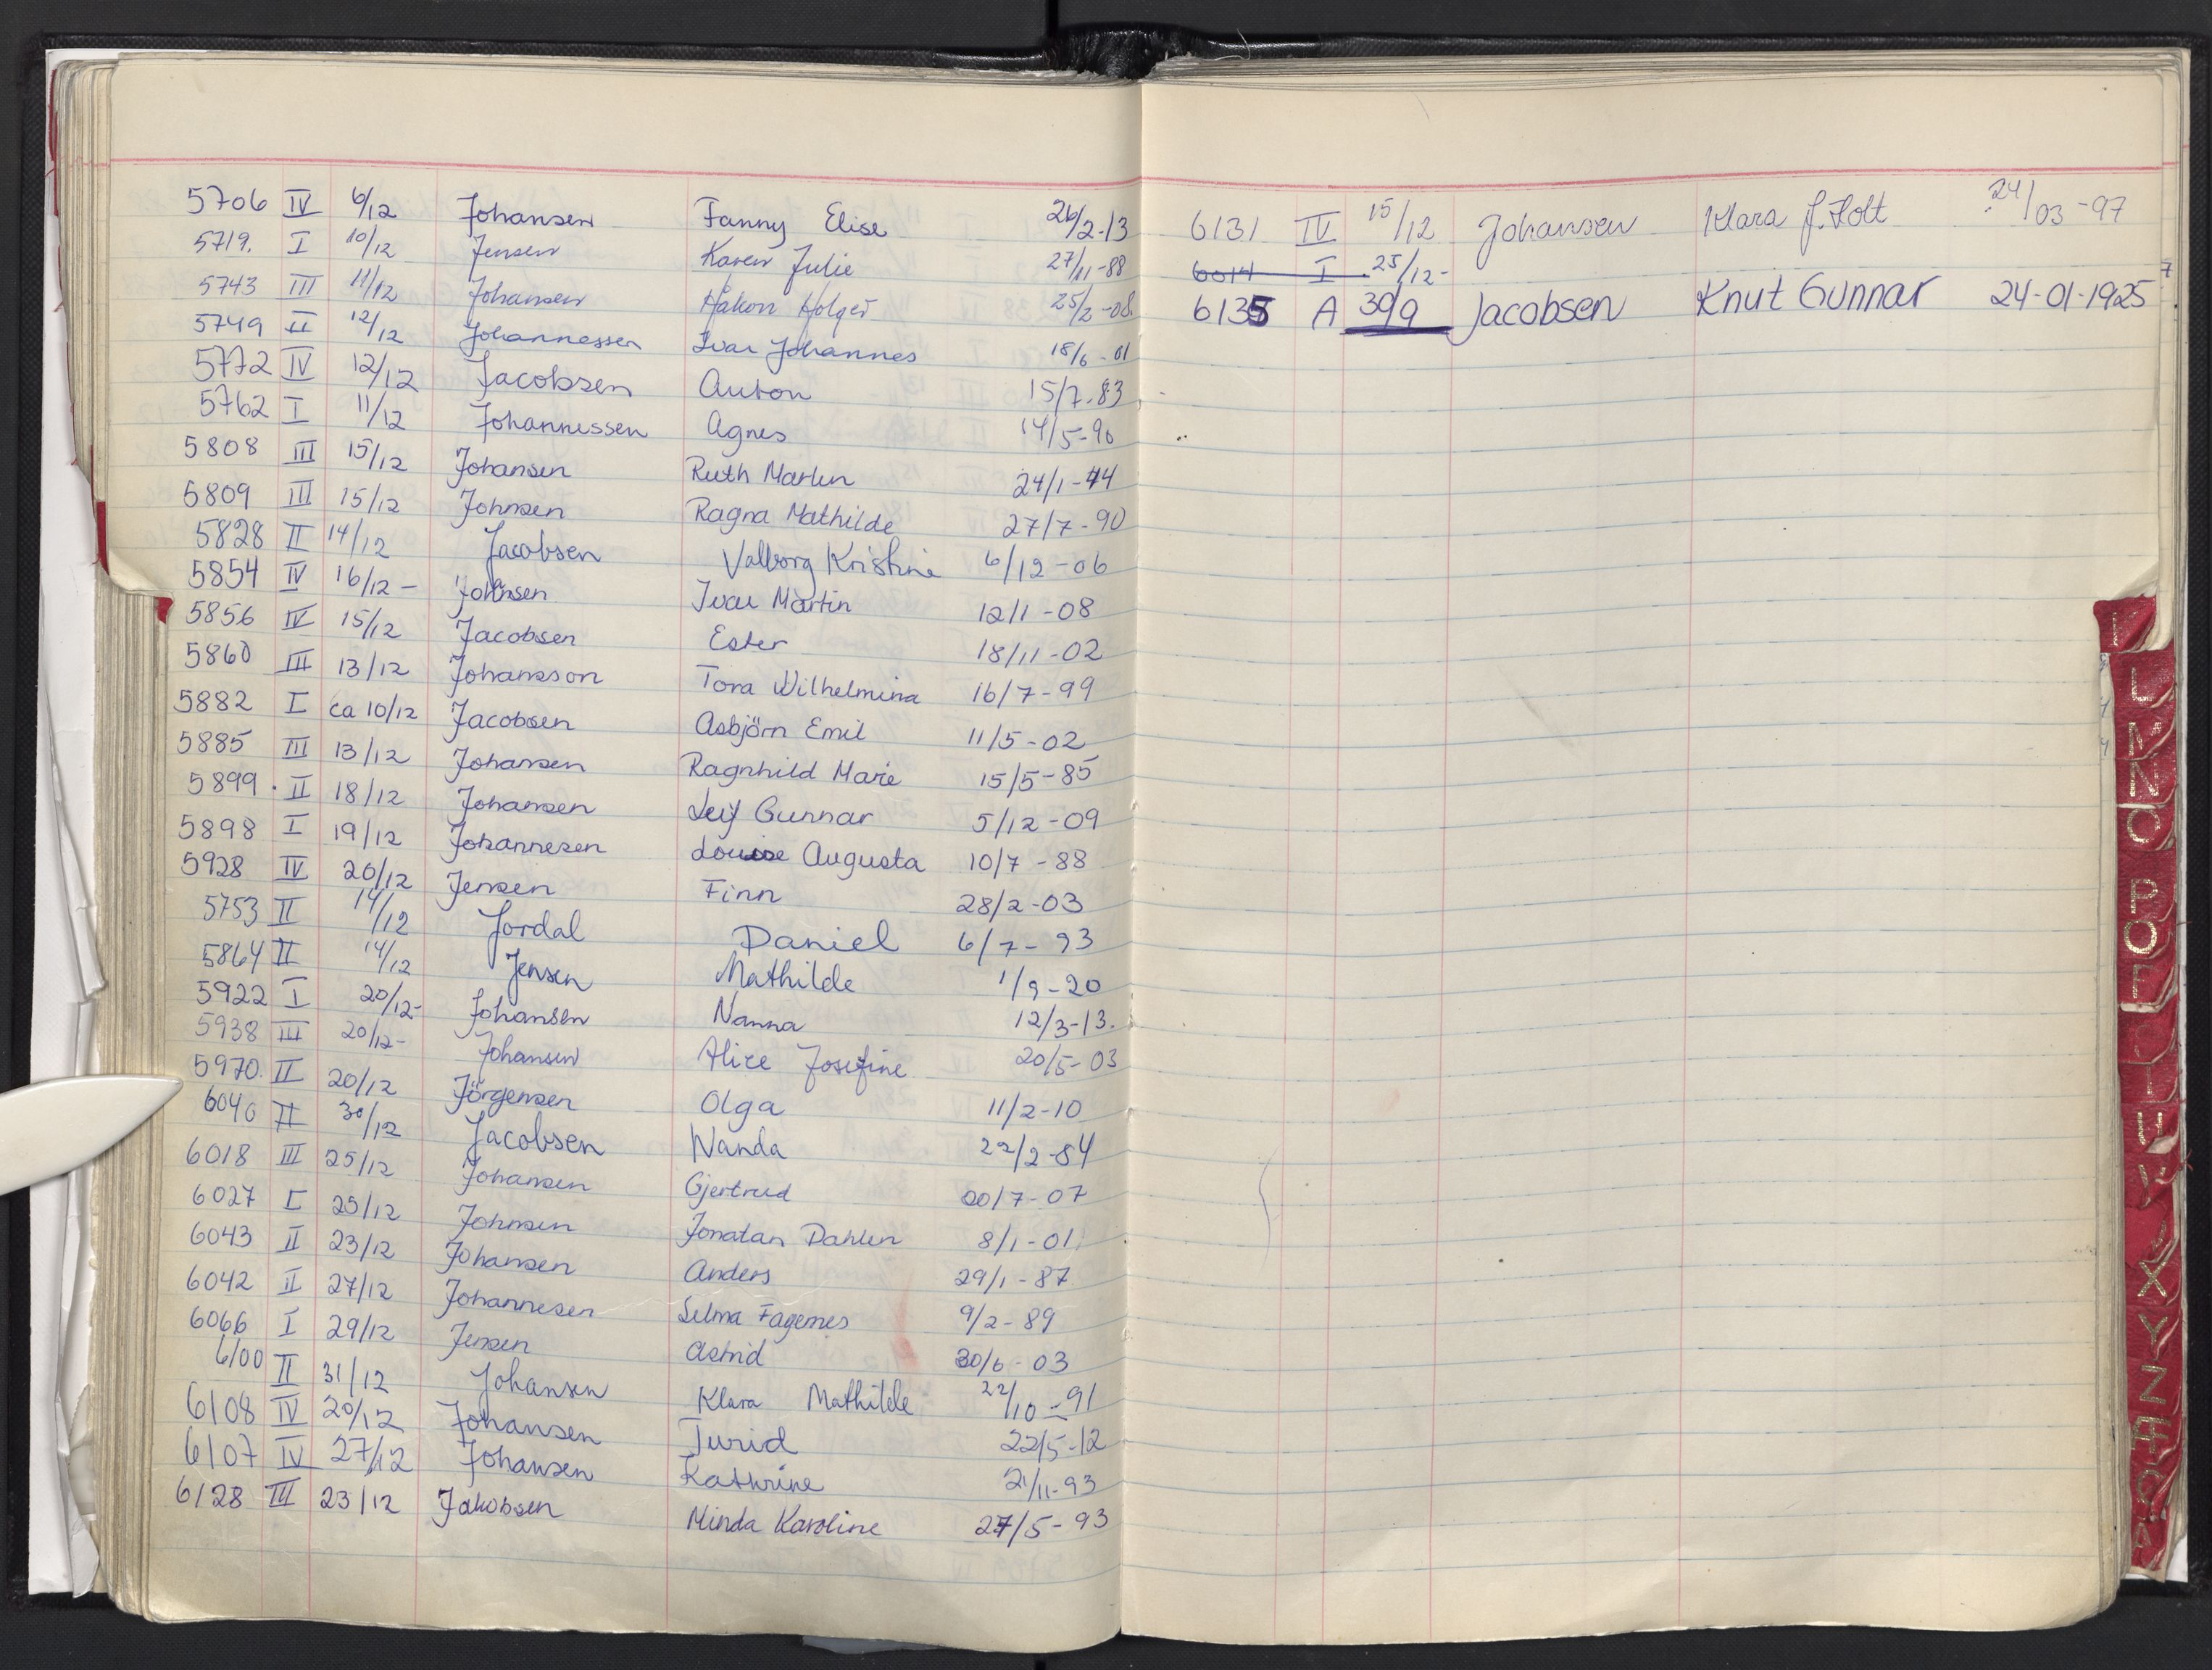 5706 IV 6/12 Johansen Fanny Elise 26/2-13
5719. I 10/12 Jensen Karen Julie 27/11-88
5743 III 11/12 Johansen Håkon Holger 25/2-08.
5749 II 12/12 Johannessen Ivar Johannes 18/6-01
5772 IV 12/12 Jacobsen Anton 15/7-83
5762 I 11/12 Johannessen Agnes 14/5-96
5808 III 15/12 Johansen Ruth Marlen 24/1-44
5809 III 15/12 Johnsen Ragna Mathilde 27/7-90
5828 II 14/12 Jacobsen Valborg Kristine 6/12-06
5854 IV 16/12- Johansen Ivar Martin 12/1-08
5856 IV 15/12 Jacobsen Ester 18/11-02
5860 III 13/12 Johansson Tora Wilhelmina 16/7-99
5882 I ca 10/12 Jacobsen Asbjörn Emil 11/5-02
5885 III 13/12 Johansen Ragnhild Marie 15/5-85
5899. II 18/12 Johansen Leif Gunnar 5/12-09
5898 I 19/12 Johannesen Louise Augusta 10/7-88
5928 IV 20/12 Jensen Finn 28/2-03
5753 II 14/12 Jordal Daniel 6/7-93
5864 II 14/12 Jensen Mathilde 1/9-20
5922 I 20/12- Johansen Nanna 12/3-13.
5938 III 20/12- Johansen Alice Josefine 20/5-03
5970. II 20/12 Jörgensen Olga 11/2-10
6046 II 30/12 Jacobsen Wanda 22/2-84
6018 III 25/12 Johansen Gjertrud 20/7-07
6027 I 25/12 Johnsen Jonatan Dahlen 8/1-01
6043 II 23/12 Johansen Anders 29/1-87
6042 II 27/12 Johannesen Selma Fagernes 9/2-89
6066 I 29/12 Jensen Astrid 30/6-03
6100 II 31/12 Johansen Klara Mathilde 22/10-91
6108 IV 20/12 Johansen Turid 22/5-12
6107 IV 27/12 Johansen Kathrine 21/11-93
6128 III 23/12 Jakobsen Minda Karoline 27/5-93
6131 IV 15/12 Johansen Klara J. Holt 24/03-97
6014 I 25/12-
6135 A 30/9 Jacobsen Knut Gunnar 24-01-1925
L
M
N
O
P
Q
U
V
X
Y
Z
Æ